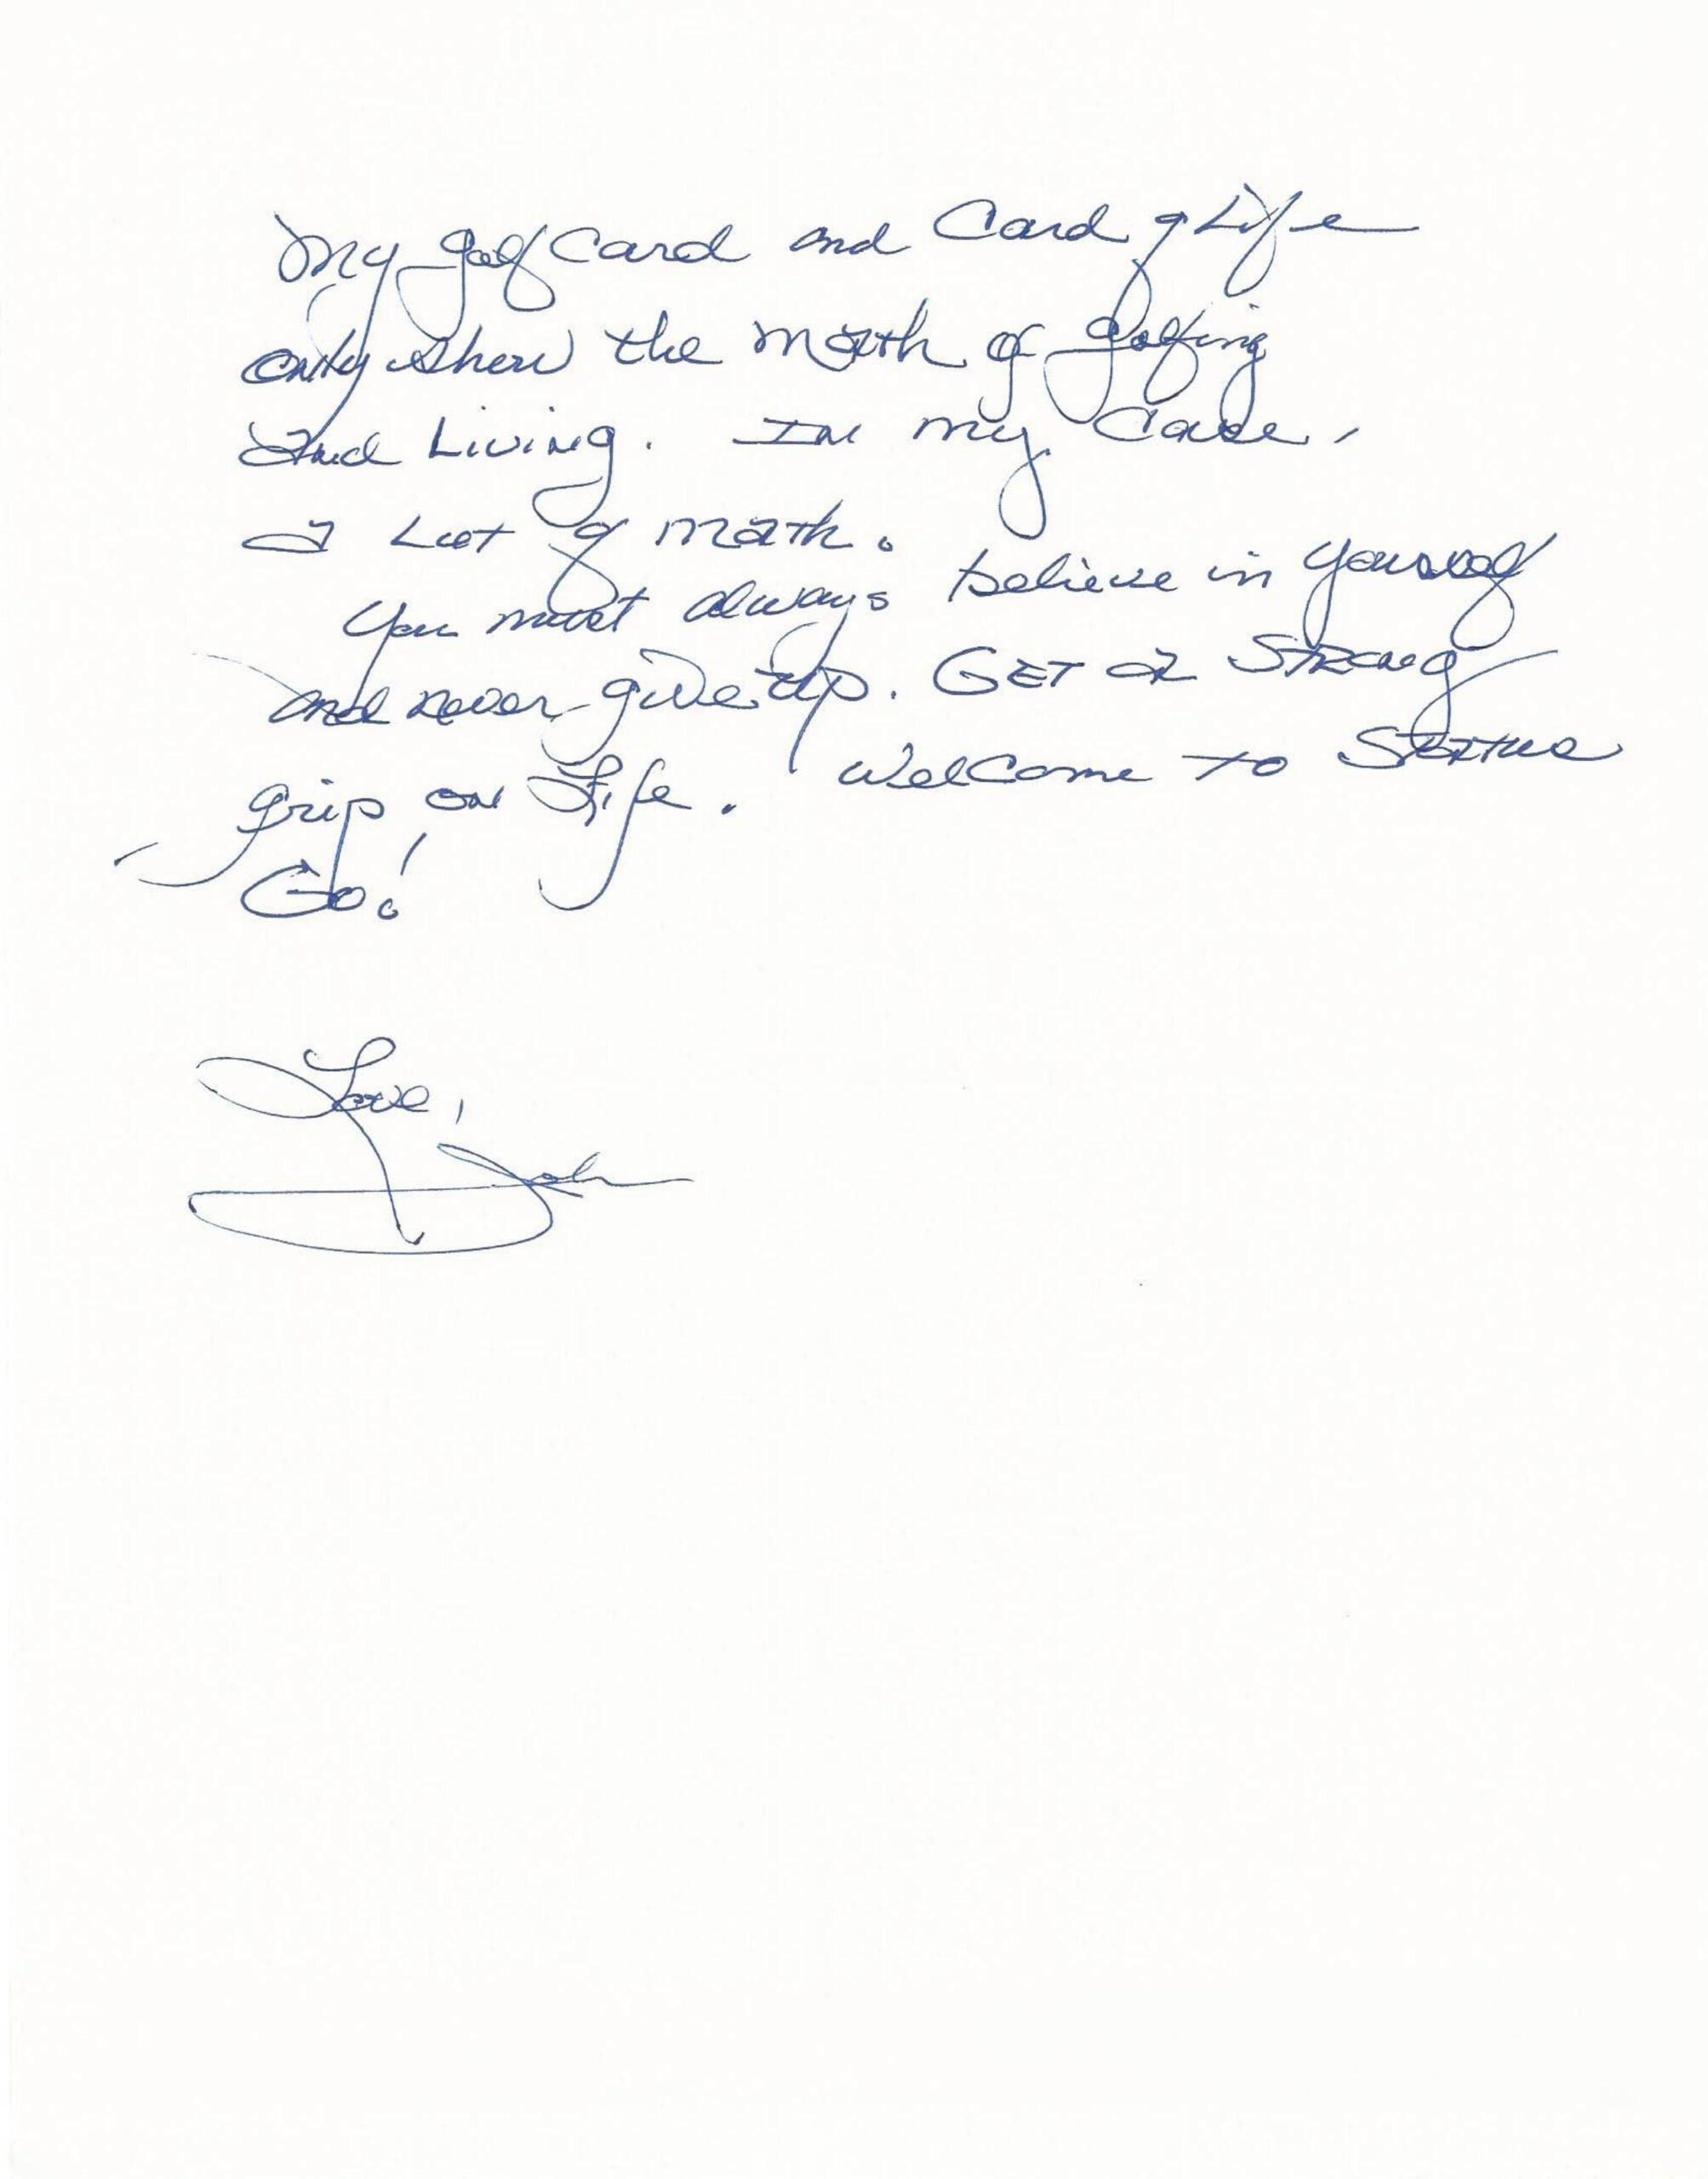 My golf Card and Card of Life
only show the math of golfing
And Living. In my Case,
a Lot of math.
You must always believe in yourself
and never give up. GET a Strong
grip on Life. Welcome to
Go!
Love,
John